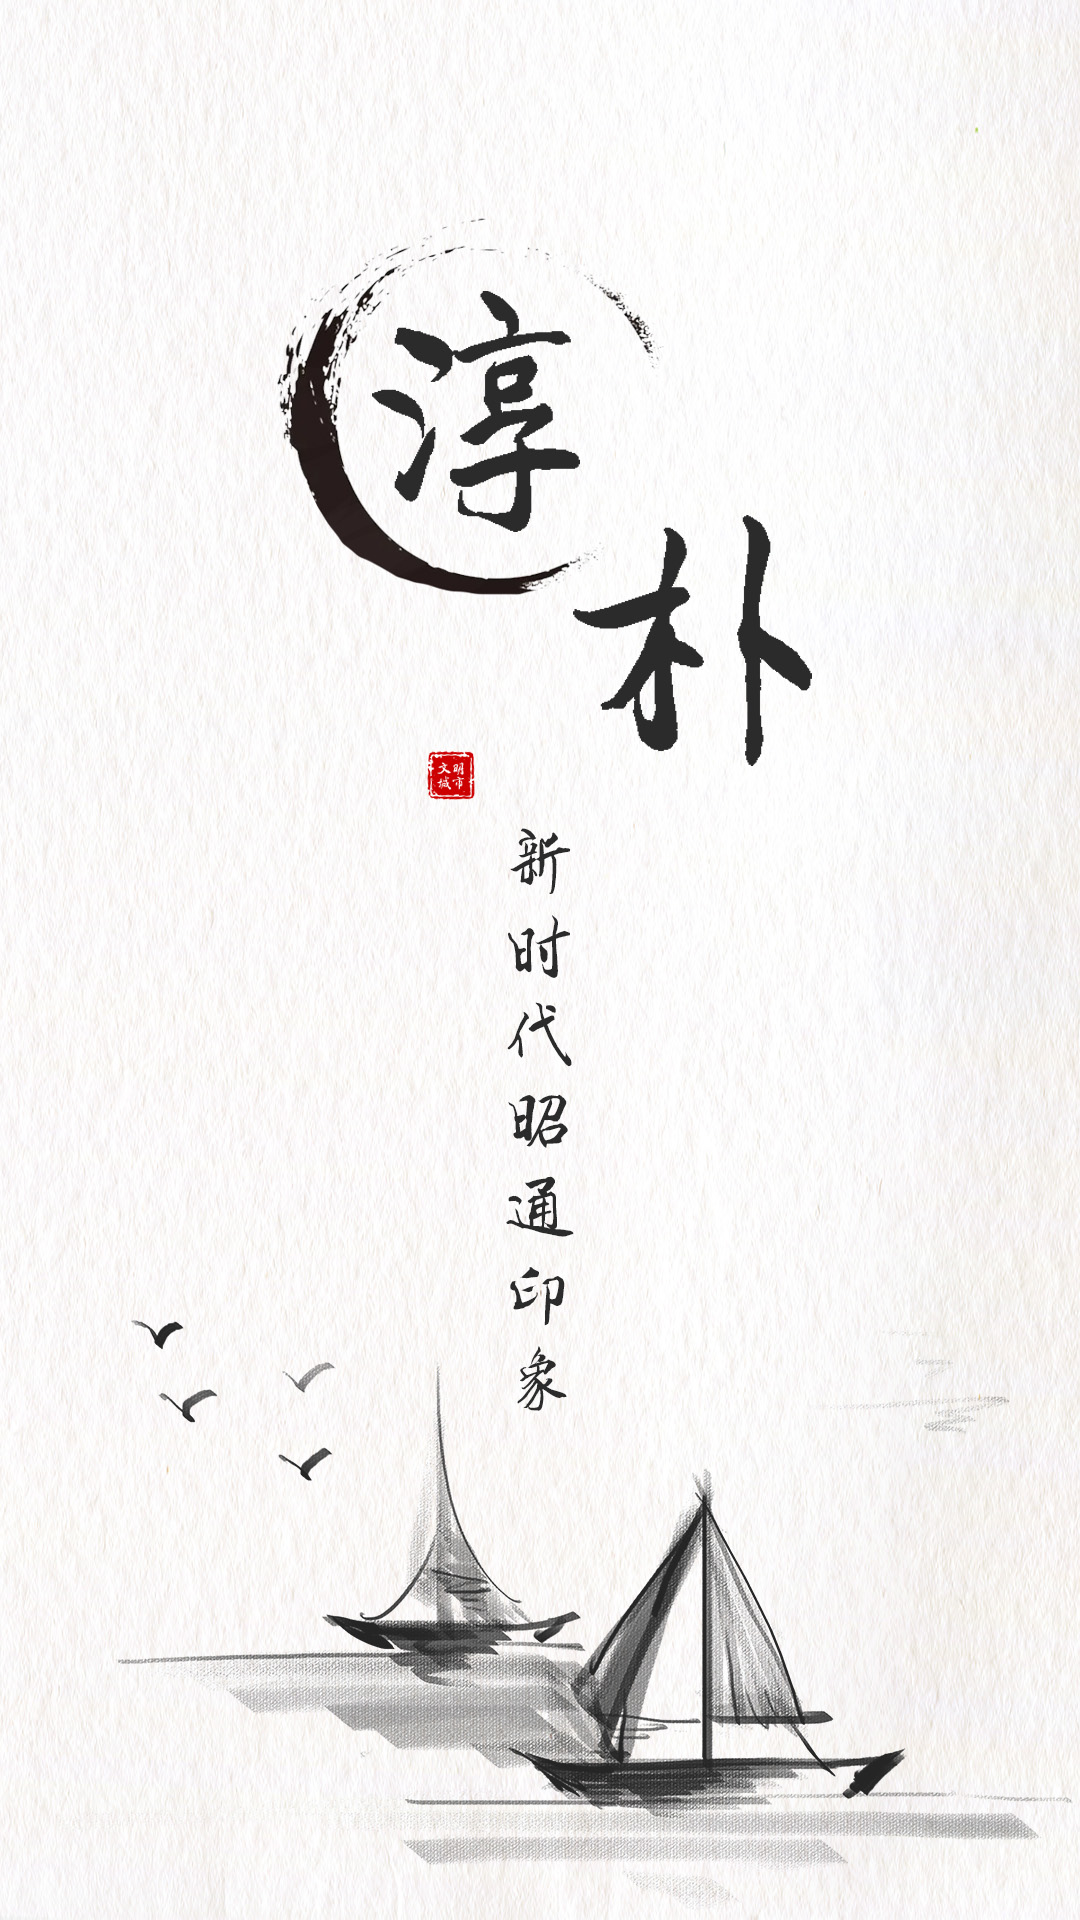 淳朴
文明
城市
新时代昭通印象